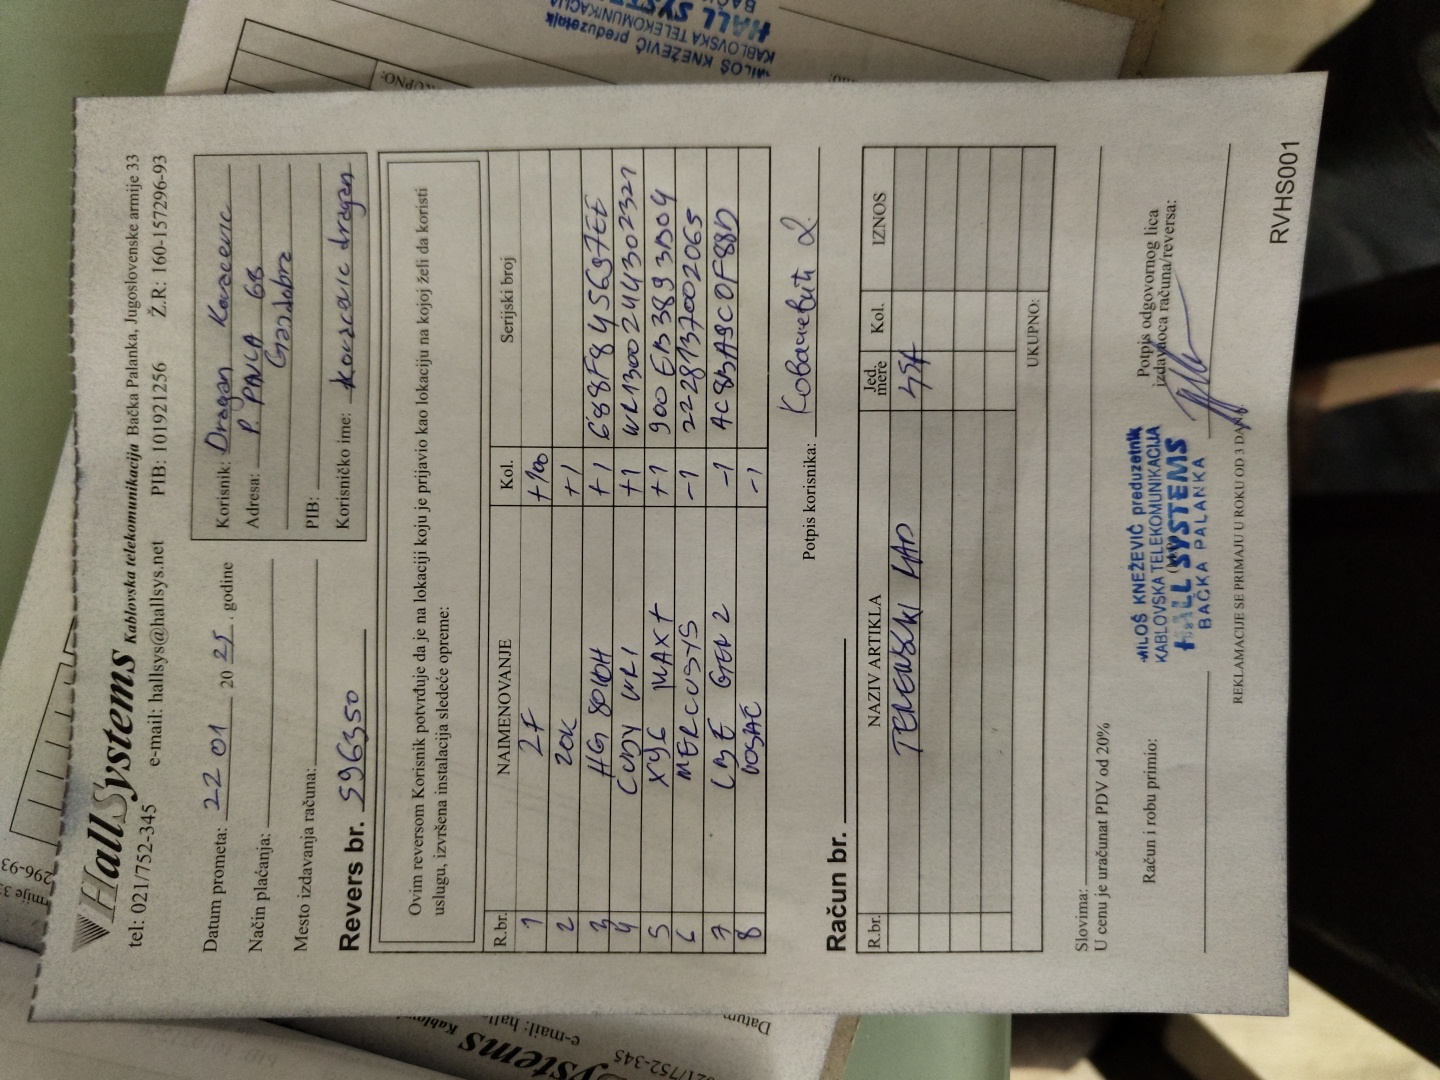 HallSystems Kablovska telekomunikacija Bačka Palanka, Jugoslovenske armije 33
tel: 021/752-345 e-mail: hallsys@hallsys.net PIB: 101921256 Ž.R: 160-157296-93
Datum prometa: 22 01 2025. godine
Način plaćanja:
Mesto izdavanja računa:
Korisnik: Dragan Kovacevic
Adresa: P. PAVLA 68
Gajdobra
PIB:
Korisničko ime: kovacevic dragan
Revers br. 596350
Ovim reversom Korisnik potvrđuje da je na lokaciji koju je prijavio kao lokaciju na kojoj želi da koristi
uslugu, izvršena instalacija sledeće opreme:
R.br. NAIMENOVANJE Kol. Serijski broj
1 2F +100
2 ZOK +1
3 +1 688F8456976E
4 CUDY WR1 +1 WR13002443023 21
5 X96 MAX+ +1 900EB3893B04
6 MERCUSYS -1 2228137002065
7 GEN 2 -1 4C8BA9C0F88D
8 -1
Potpis korisnika: Ковачевић Д.
Račun br.
R.br. NAZIV ARTIKLA Jed. mere Kol. IZNOS
TERENSKI RAD
UKUPNO:
Slovima:
U cenu je uračunat PDV od 20%
Račun i robu primio:
MILOŠ KNEŽEVIĆ preduzetnik
KABLOVSKA TELEKOMUNIKACIJA
HALL SYSTEMS
BAČKA PALANKA
Potpis odgovornog lica
izdavaoca računa/reversa:
REKLAMACIJE SE PRIMAJU U ROKU OD 3 DANA.
RVHS001
MILOŠ KNEŽEVIĆ preduzetnik
KABLOVSKA TELEKOMUNIKACIJA
HALL SYSTE
BAČ